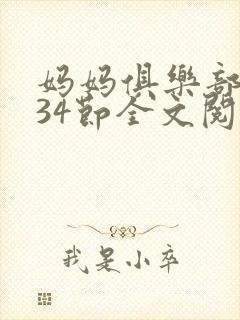 妈妈俱樂部
34節全文閱
我是小卒